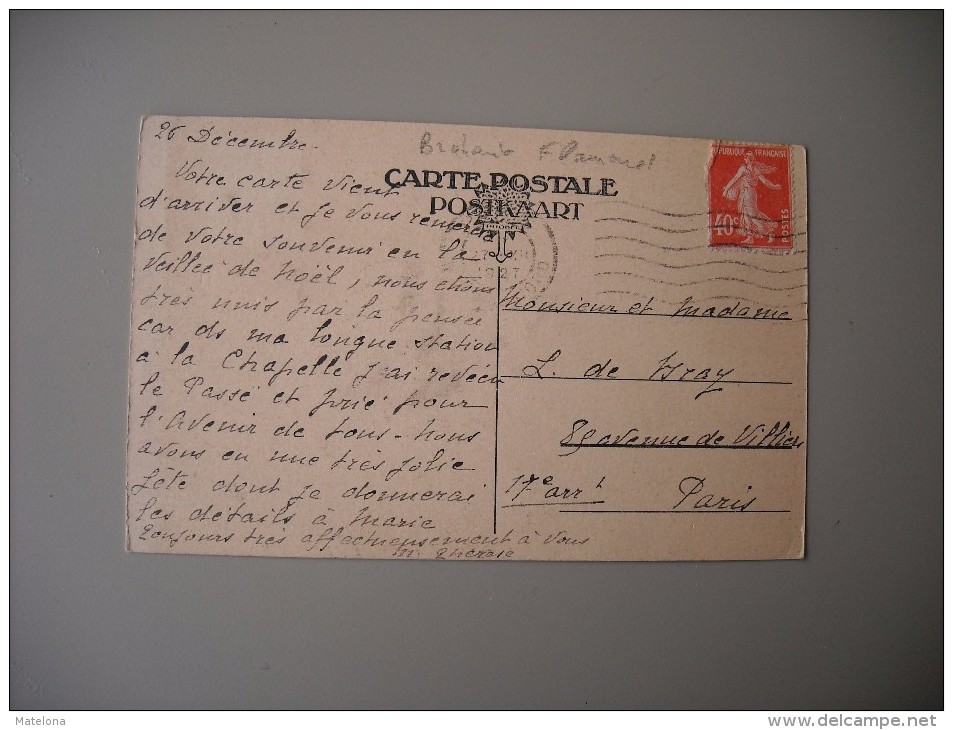 26 Décembre.
Votre carte vient
d'arriver et je vous remercie
de votre souvenir en la
veillée de Noël, nous étions
très unis par la pensée
car ds ma longue station
à la Chapelle j'ai revécu
le Passé et prié pour
l'Avenir de tous - nous
avons eu une très jolie
fête dont je donnerai
les détails à Marie
Toujours très affectueusement à vous
M. Thérèse
CARTE POSTALE
POSTKAART
1927
REPUBLIQUE FRANÇAISE
40c
POSTES
Monsieur et Madame
L. de Bray
89 avenue de Villiers
17e arrt
Paris
Matelona
delcampe.net